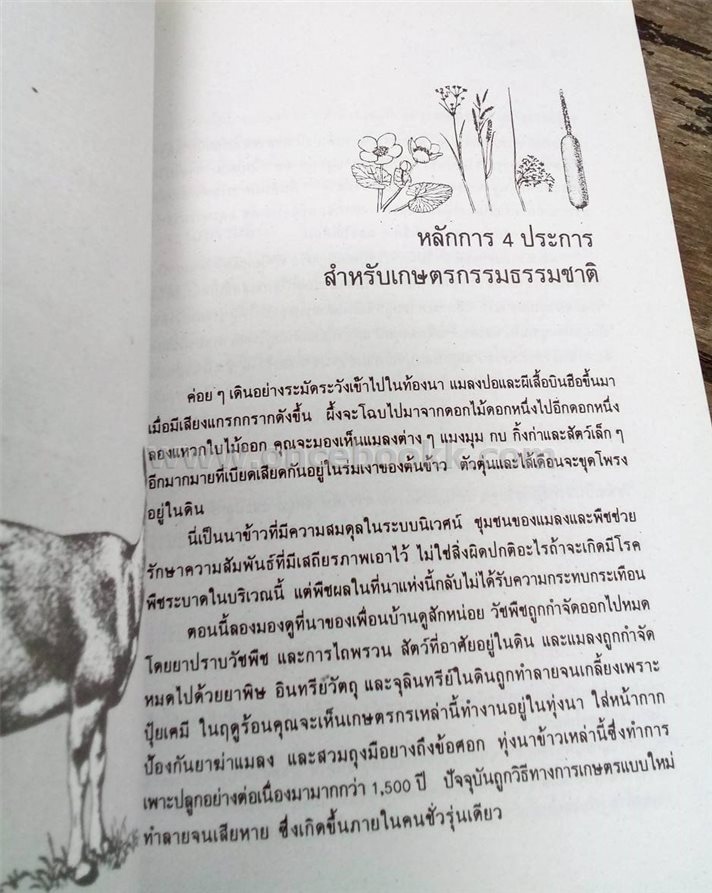 หลักการ 4 ประการ
สำหรับเกษตรกรรมธรรมชาติ
ค่อย ๆ เดินอย่างระมัดระวังเข้าไปในท้องนา แมลงปอและผีเสื้อบินฮือขึ้นมา
เมื่อมีเสียงแกรกกรากดังขึ้น ผึ้งจะโฉบไปมาจากดอกไม้ดอกหนึ่งไปอีกดอกหนึ่ง
ลองแหวกใบไม้ออก คุณจะมองเห็นแมลงต่าง ๆ แมงมุม กบ กิ้งก่าและสัตว์เล็ก ๆ
อีกมากมายที่เบียดเสียดกันอยู่ในร่มเงาของต้นข้าว ตัวตุ่นและไส้เดือนจะขุดโพรง
อยู่ในดิน
นี่เป็นนาข้าวที่มีความสมดุลในระบบนิเวศน์ ชุมชนของแมลงและพืชช่วย
รักษาความสัมพันธ์ที่มีเสถียรภาพเอาไว้ ไม่ใช่สิ่งผิดปกติอะไรถ้าจะเกิดมีโรค
พืชระบาดในบริเวณนี้ แต่พืชผลในที่นาแห่งนี้กลับไม่ได้รับความกระทบกระเทือน
ตอนนี้ลองมองดูที่นาของเพื่อนบ้านดูสักหน่อย วัชพืชถูกกำจัดออกไปหมด
โดยยาปราบวัชพืช และการไถพรวน สัตว์ที่อาศัยอยู่ในดิน และแมลงถูกกำจัด
หมดไปด้วยยาพิษ อินทรีย์วัตถุ และจุลินทรีย์ในดินถูกทำลายจนเกลี้ยงเพราะ
ปุ๋ยเคมี ในฤดูร้อนคุณจะเห็นเกษตรกรเหล่านี้ทำงานอยู่ในทุ่งนา ใส่หน้ากาก
ป้องกันยาฆ่าแมลง และสวมถุงมือยางถึงข้อศอก ทุ่งนาข้าวเหล่านี้ซึ่งทำการ
เพาะปลูกอย่างต่อเนื่องมามากกว่า 1,500 ปี ปัจจุบันถูกวิธีทางการเกษตรแบบใหม่
ทำลายจนเสียหาย ซึ่งเกิดขึ้นภายในคนชั่วรุ่นเดียว